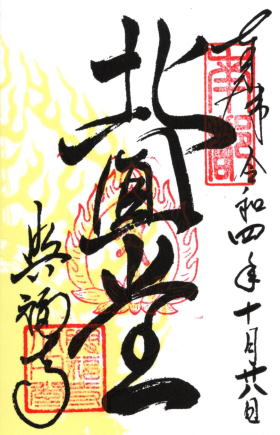 奉拝 令和四年十月廿八日
北円堂
興福寺